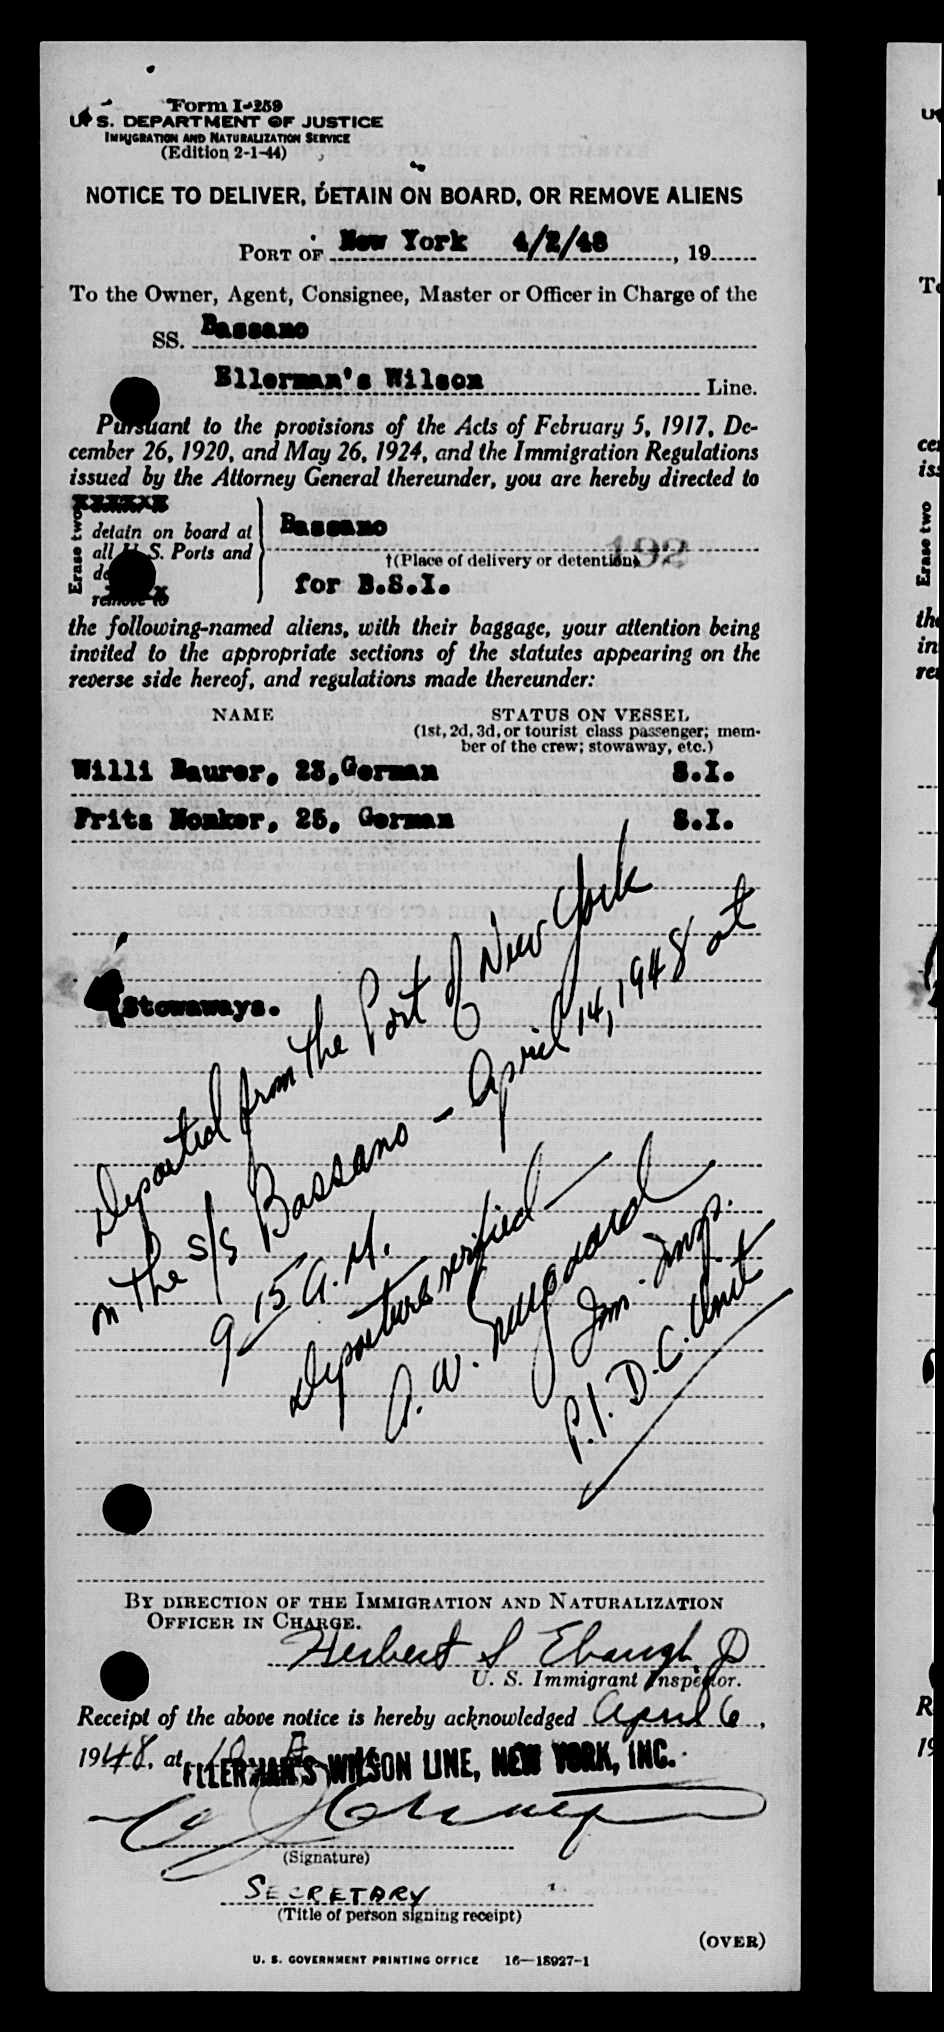 Form I-259
U. S. DEPARTMENT OF JUSTICE
IMMIGRATION AND NATURALIZATION SERVICE
(Edition 2-1-44)
NOTICE TO DELIVER, DETAIN ON BOARD, OR REMOVE ALIENS
PORT OF New York 4/2/48, 19
To the Owner, Agent, Consignee, Master or Officer in Charge of the
SS. Bassano
Ellerman's Wilson Line.
Pursuant to the provisions of the Acts of February 5, 1917, De-
cember 26, 1920, and May 26, 1924, and the Immigration Regulations
issued by the Attorney General thereunder, you are hereby directed to
Erase two
xxxxxx
detain on board at
all U. S. Ports and
remove to
Bassano
†(Place of delivery or detention)
192
for B.S.I.
the following-named aliens, with their baggage, your attention being
invited to the appropriate sections of the statutes appearing on the
reverse side hereof, and regulations made thereunder:
NAME STATUS ON VESSEL
(1st, 2d, 3d, or tourist class passenger; mem-
ber of the crew; stowaway, etc.)
Willi Baurer, 23, German S.I.
Fritz Nonker, 25, German S.I.
Stowaways.
Deported from the Port of New York
on the s/s Bassano - April 14, 1948 at
9 15 A.M.
Departure verified -
Imm. Insp.
P.I. D.C. Unit
BY DIRECTION OF THE IMMIGRATION AND NATURALIZATION
OFFICER IN CHARGE.
Herbert S Ebaugh, Jr
U. S. Immigrant Inspector.
Receipt of the above notice is hereby acknowledged April 6,
1948, at 10
ELLERMAN'S WILSON LINE, NEW YORK, INC.
(Signature)
SECRETARY
(Title of person signing receipt)
(OVER)
U. S. GOVERNMENT PRINTING OFFICE 16—18927-1